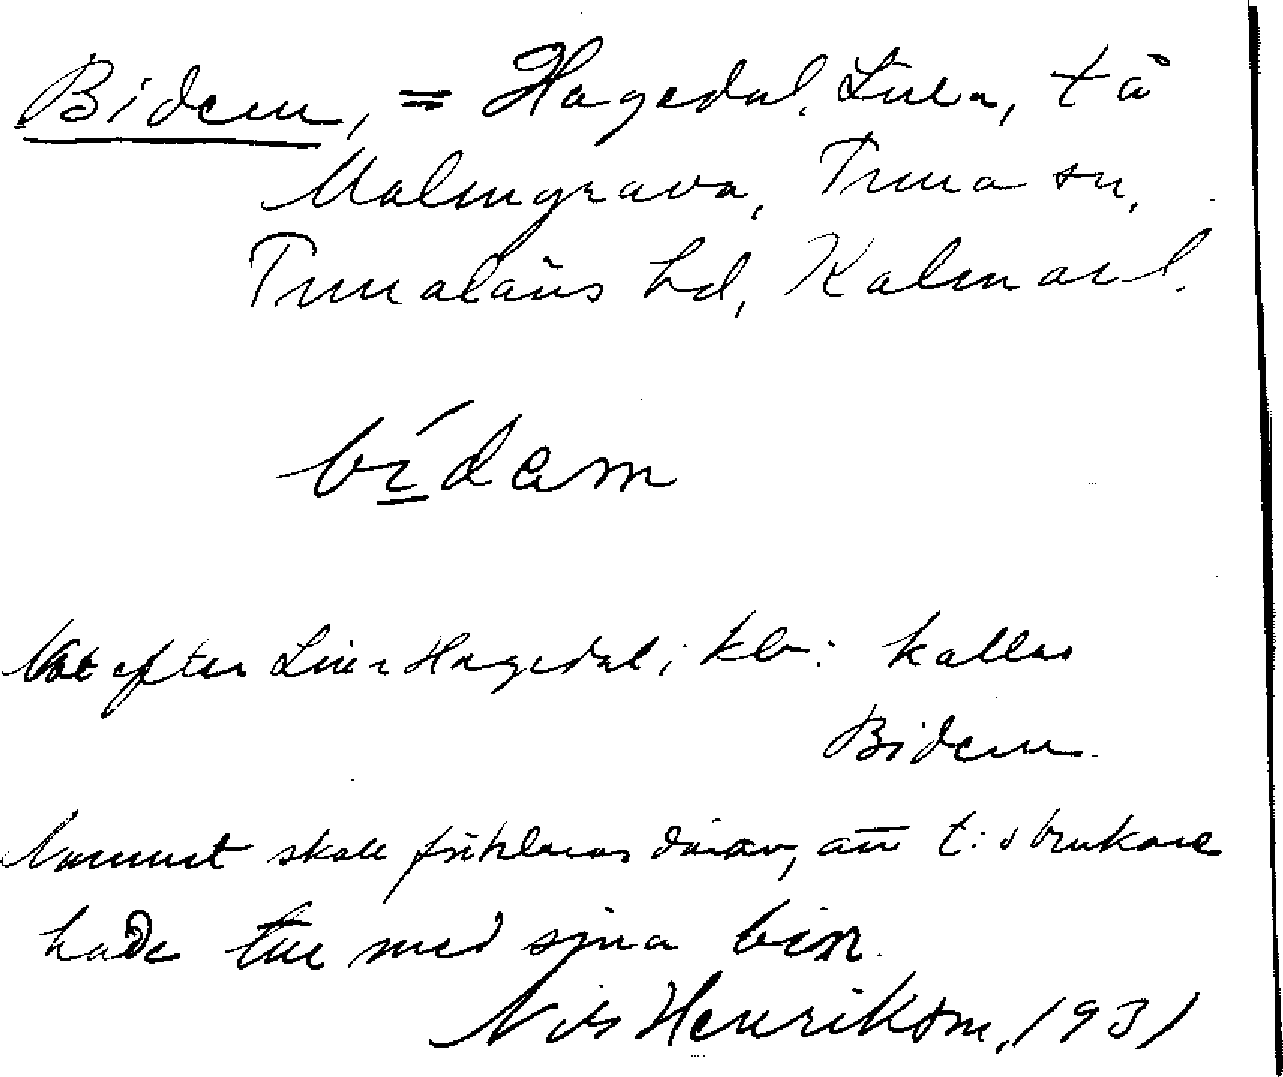 Bidem, = Hagedal, Lilla, tå
Malmgrava, Tuna sn,
Tunaläns hd, Kalmar l.
bídam
Not efter Lilla Hagedal; kb: kallas
Bidem.
Namnet skall förklaras därav, att t: s brukare
hade tur med sina bin.
Nils Henrikson, 1931